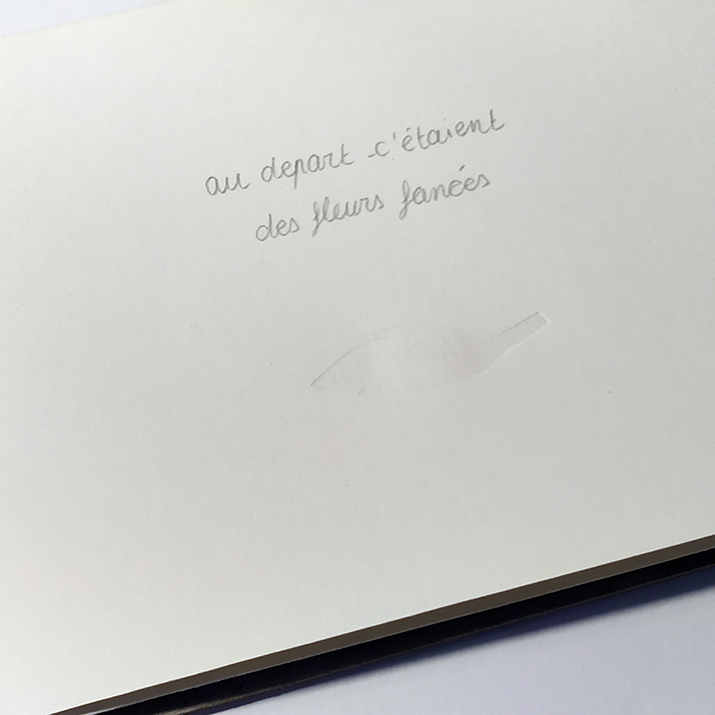 au depart c'étaient
des fleurs fanées